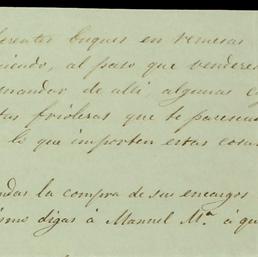 ferentes buques en remesas
ciendo, al paso que venderes
mandar de alli, algunas
tas frioleras que te parescan
lo que importen estas cosas

ndas la compra de sus encargos
ismo digas à Manuel M.ª à qu